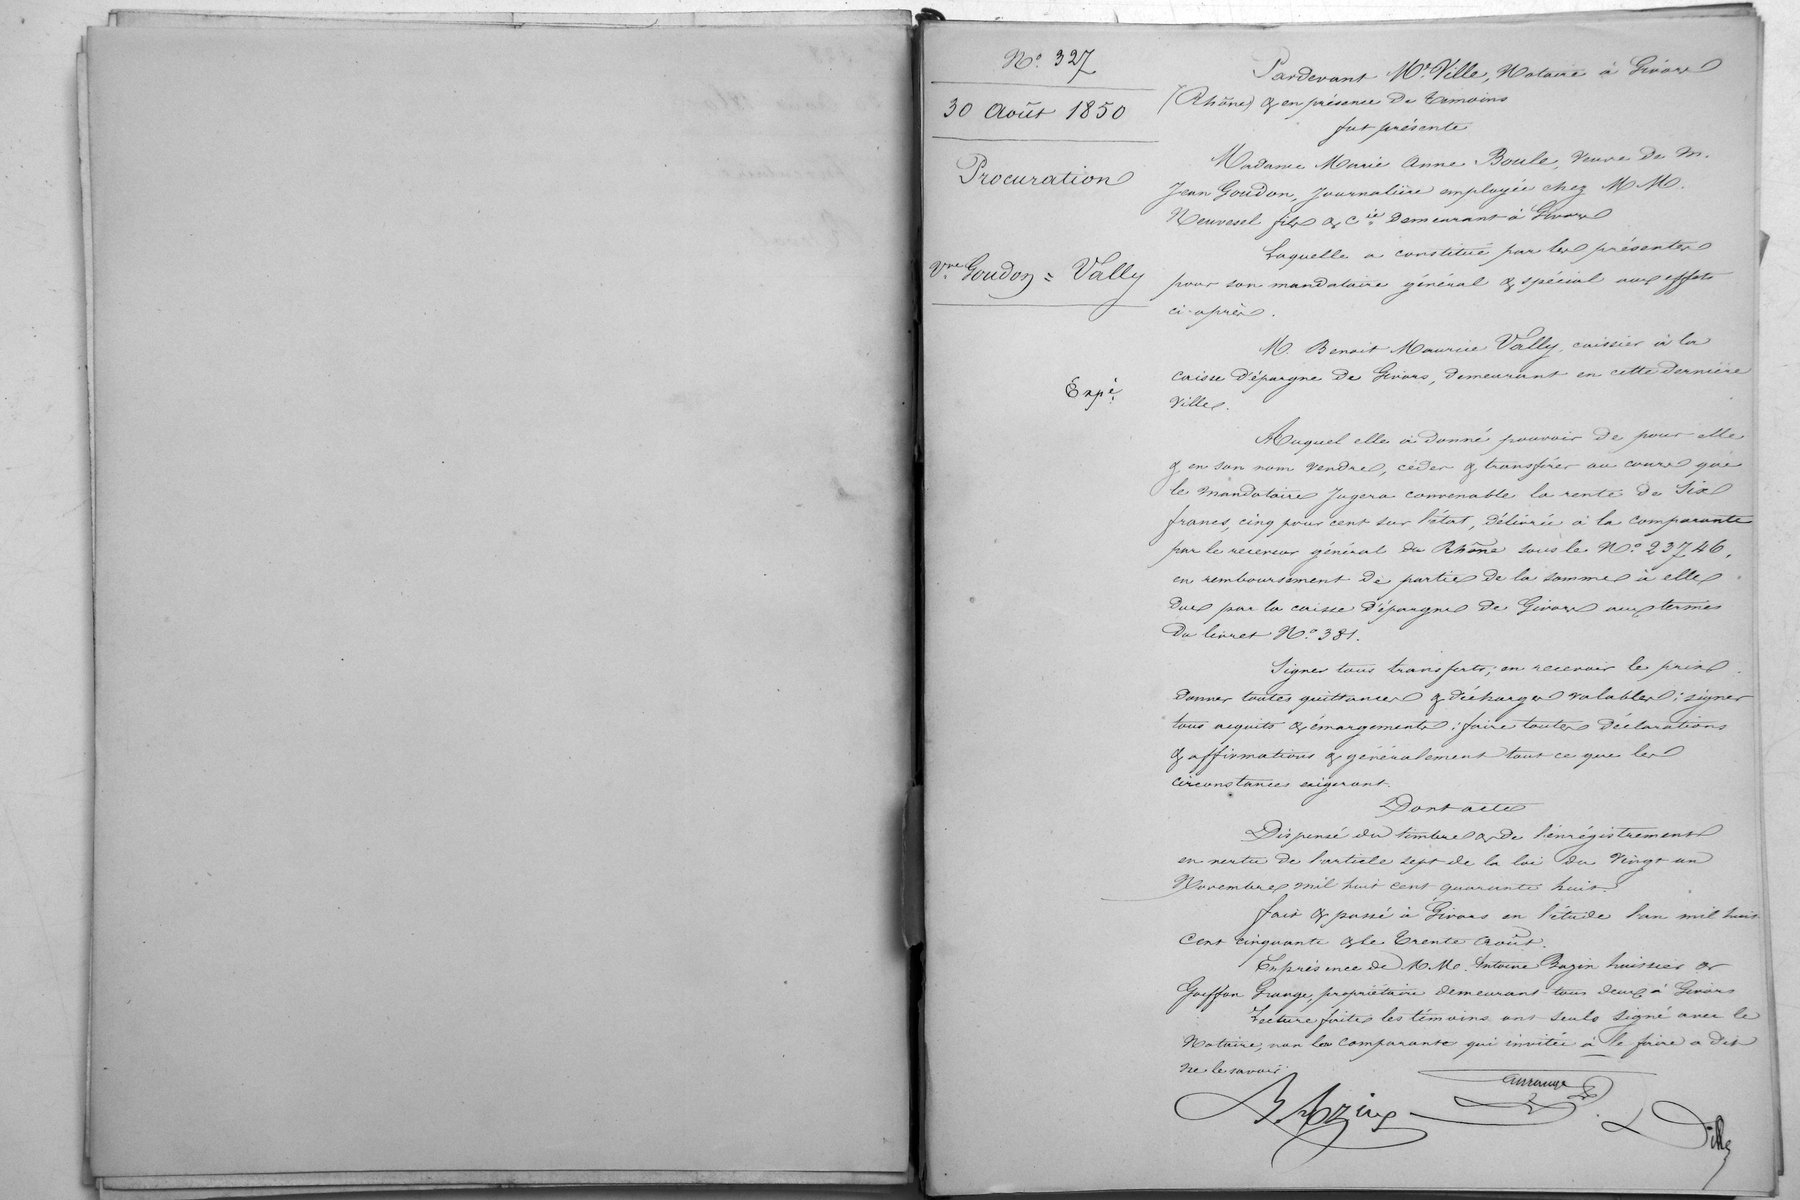 N.º 327
30 Août 1850
Procuration
V.ve Goudon = Vally
Expé.
Pardevant Me. Ville, Notaire à Givors
(Rhône) & en présence de témoins
fut présente
Madame Marie Anne Boule, veuve de M.
Jean Goudon, Journalière employée chez M M.
Neuvesel fils & Cie. demeurant à Givors
Laquelle a constitué par les présentes
pour son mandataire général & spécial aux effets
ci-après.
M. Benoit Maurice Vally, caissier à la
caisse d'épargne de Givors, demeurant en cette dernière
ville.
Auquel elle a donné pouvoir de pour elle
& en son nom vendre, céder & transférer au cours que
le mandataire Jugera convenable la rente de Six
francs, cinq pour cent sur l'état, délivrée à la comparante
par le receveur général du Rhône sous le N.º 23746,
en remboursement de partie de la somme à elle
due par la caisse d'épargne de Givors aux termes
du livret N.º 381.
Signer tous transferts; en recevoir le prix
donner toutes quittances & décharges valables; signer
tous acquits & émargements; faire toutes déclarations
& affirmations & généralement tout ce que les
circonstances exigeront.
Dont acte
Dispensé du timbre & de l'enrégistrement
en vertu de l'article sept de la loi du vingt un
Novembre mil huit cent quarante huit.
fait & passé à Givors en l'étude l'an mil huit
cent cinquante & le trente Août.
En présence de M M. Antoine Bazin huissier &
Goiffon Grange, propriétaire demeurant tous deux à Givors
Lecture faite les témoins ont seuls signé avec le
Notaire, non la comparante qui invitée à le faire a dit
ne le savoir.
Bazin
Ville